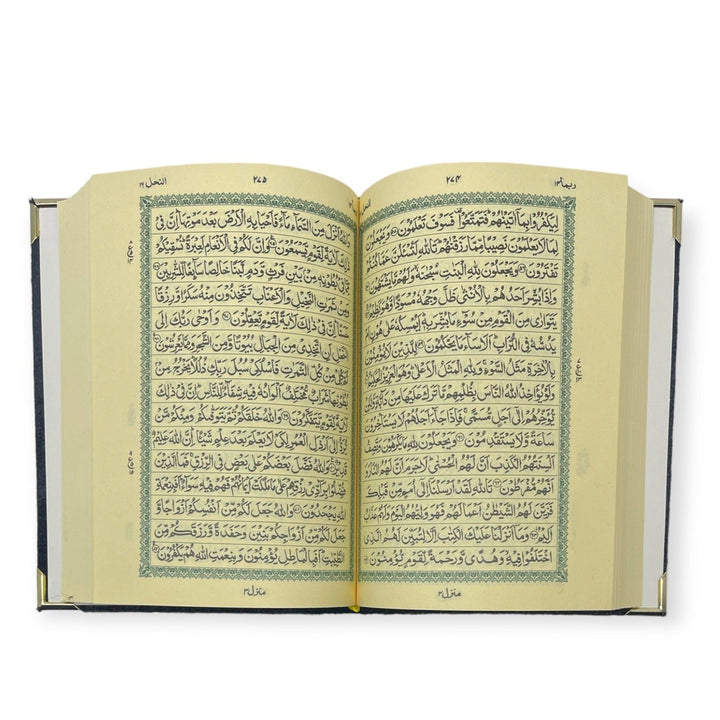 ربما ۱۴
۲۷۴
النحل
لِيَكْفُرُوْا بِمَاۤ اٰتَيْنٰهُمْ فَتَمَتَّعُوْا فَسَوْفَ تَعْلَمُوْنَ ۝ وَيَجْعَلُوْنَ
لِمَا لَا يَعْلَمُوْنَ نَصِيْبًا مِّمَّا رَزَقْنٰهُمْ تَاللّٰهِ لَتُسْـَٔلُنَّ عَمَّا كُنْتُمْ
تَفْتَرُوْنَ ۝ وَيَجْعَلُوْنَ لِلّٰهِ الْبَنٰتِ سُبْحٰنَهٗ وَلَهُمْ مَّا يَشْتَهُوْنَ ۝
وَاِذَا بُشِّرَ اَحَدُهُمْ بِالْاُنْثٰى ظَلَّ وَجْهُهٗ مُسْوَدًّا وَّهُوَ كَظِيْمٌ ۝
يَتَوَارٰى مِنَ الْقَوْمِ مِنْ سُوْٓءِ مَا بُشِّرَ بِهٖ اَيُمْسِكُهٗ عَلٰى هُوْنٍ اَمْ
يَدُسُّهٗ فِى التُّرَابِ اَلَا سَآءَ مَا يَحْكُمُوْنَ ۝ لِلَّذِيْنَ لَا يُؤْمِنُوْنَ
بِالْاٰخِرَةِ مَثَلُ السَّوْءِ وَلِلّٰهِ الْمَثَلُ الْاَعْلٰى وَهُوَ الْعَزِيْزُ الْحَكِيْمُ ۝
وَلَوْ يُؤَاخِذُ اللّٰهُ النَّاسَ بِظُلْمِهِمْ مَّا تَرَكَ عَلَيْهَا مِنْ دَآبَّةٍ وَّلٰكِنْ
يُّؤَخِّرُهُمْ اِلٰۤى اَجَلٍ مُّسَمًّى فَاِذَا جَآءَ اَجَلُهُمْ لَا يَسْتَاْخِرُوْنَ
سَاعَةً وَّلَا يَسْتَقْدِمُوْنَ ۝ وَيَجْعَلُوْنَ لِلّٰهِ مَا يَكْرَهُوْنَ وَتَصِفُ
اَلْسِنَتُهُمُ الْكَذِبَ اَنَّ لَهُمُ الْحُسْنٰى لَا جَرَمَ اَنَّ لَهُمُ النَّارَ وَ
اَنَّهُمْ مُّفْرَطُوْنَ ۝ تَاللّٰهِ لَقَدْ اَرْسَلْنَاۤ اِلٰۤى اُمَمٍ مِّنْ قَبْلِكَ
فَزَيَّنَ لَهُمُ الشَّيْطٰنُ اَعْمَالَهُمْ فَهُوَ وَلِيُّهُمُ الْيَوْمَ وَلَهُمْ عَذَابٌ
اَلِيْمٌ ۝ وَمَاۤ اَنْزَلْنَا عَلَيْكَ الْكِتٰبَ اِلَّا لِتُبَيِّنَ لَهُمُ الَّذِى
اخْتَلَفُوْا فِيْهِ وَهُدًى وَّرَحْمَةً لِّقَوْمٍ يُّؤْمِنُوْنَ ۝
منزل ۳
۲۷۵
النحل ۱۶
وَاللّٰهُ اَنْزَلَ مِنَ السَّمَآءِ مَآءً فَاَحْيَا بِهِ الْاَرْضَ بَعْدَ مَوْتِهَا اِنَّ فِىْ
ذٰلِكَ لَاٰيَةً لِّقَوْمٍ يَّسْمَعُوْنَ ۝ وَاِنَّ لَكُمْ فِى الْاَنْعَامِ لَعِبْرَةً نُسْقِيْكُمْ
مِّمَّا فِىْ بُطُوْنِهٖ مِنْۢ بَيْنِ فَرْثٍ وَّدَمٍ لَّبَنًا خَالِصًا سَآئِغًا لِّلشّٰرِبِيْنَ ۝
وَمِنْ ثَمَرٰتِ النَّخِيْلِ وَالْاَعْنَابِ تَتَّخِذُوْنَ مِنْهُ سَكَرًا وَّرِزْقًا
حَسَنًا اِنَّ فِىْ ذٰلِكَ لَاٰيَةً لِّقَوْمٍ يَّعْقِلُوْنَ ۝ وَاَوْحٰى رَبُّكَ اِلَى
النَّحْلِ اَنِ اتَّخِذِىْ مِنَ الْجِبَالِ بُيُوْتًا وَّمِنَ الشَّجَرِ وَمِمَّا يَعْرِشُوْنَ ۝
ثُمَّ كُلِىْ مِنْ كُلِّ الثَّمَرٰتِ فَاسْلُكِىْ سُبُلَ رَبِّكِ ذُلُلًا يَخْرُجُ مِنْۢ
بُطُوْنِهَا شَرَابٌ مُّخْتَلِفٌ اَلْوَانُهٗ فِيْهِ شِفَآءٌ لِّلنَّاسِ اِنَّ فِىْ ذٰلِكَ
لَاٰيَةً لِّقَوْمٍ يَّتَفَكَّرُوْنَ ۝ وَاللّٰهُ خَلَقَكُمْ ثُمَّ يَتَوَفّٰىكُمْ وَمِنْكُمْ مَّنْ
يُّرَدُّ اِلٰۤى اَرْذَلِ الْعُمُرِ لِكَىْ لَا يَعْلَمَ بَعْدَ عِلْمٍ شَيْـًٔا اِنَّ اللّٰهَ عَلِيْمٌ
قَدِيْرٌ ۝ وَاللّٰهُ فَضَّلَ بَعْضَكُمْ عَلٰى بَعْضٍ فِى الرِّزْقِ فَمَا الَّذِيْنَ
فُضِّلُوْا بِرَآدِّىْ رِزْقِهِمْ عَلٰى مَا مَلَكَتْ اَيْمَانُهُمْ فَهُمْ فِيْهِ سَوَآءٌ اَفَبِنِعْمَةِ
اللّٰهِ يَجْحَدُوْنَ ۝ وَاللّٰهُ جَعَلَ لَكُمْ مِّنْ اَنْفُسِكُمْ اَزْوَاجًا وَّ
جَعَلَ لَكُمْ مِّنْ اَزْوَاجِكُمْ بَنِيْنَ وَحَفَدَةً وَّرَزَقَكُمْ مِّنَ
الطَّيِّبٰتِ اَفَبِالْبَاطِلِ يُؤْمِنُوْنَ وَبِنِعْمَتِ اللّٰهِ هُمْ يَكْفُرُوْنَ ۝
منزل ۳